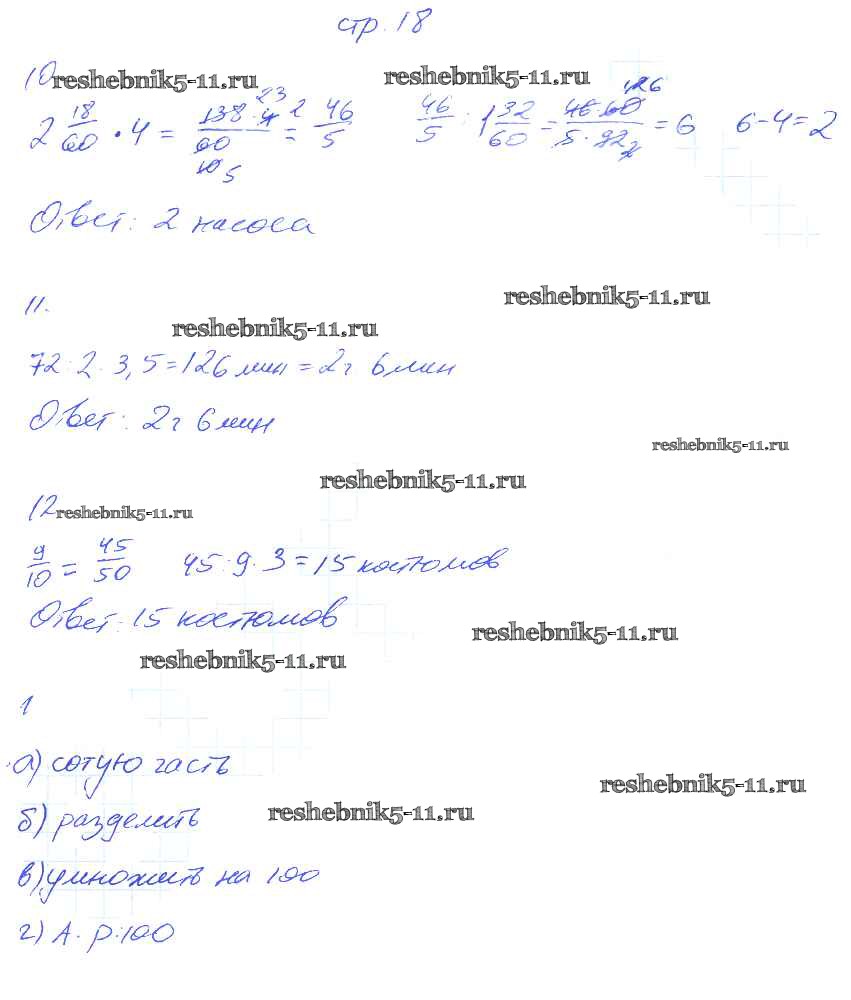 стр. 18
10 reshebnik5-11.ru reshebnik5-11.ru
2 18/60 · 4 = 138 · 4 / 60 = 46/5 46/5 : 1 32/60 = 46 · 60 / 5 · 92 = 6 6-4=2
Ответ: 2 насоса
reshebnik5-11.ru
11.
reshebnik5-11.ru
72 : 2 · 3,5 = 126 мин = 2ч 6 мин
Ответ: 2ч 6 мин
reshebnik5-11.ru
reshebnik5-11.ru
12 reshebnik5-11.ru
9/10 = 45/50 45 : 9 · 3 = 15 костюмов
Ответ: 15 костюмов
reshebnik5-11.ru
reshebnik5-11.ru
1
а) сотую часть
reshebnik5-11.ru
б) разделить reshebnik5-11.ru
в) умножить на 100
г) А · р : 100